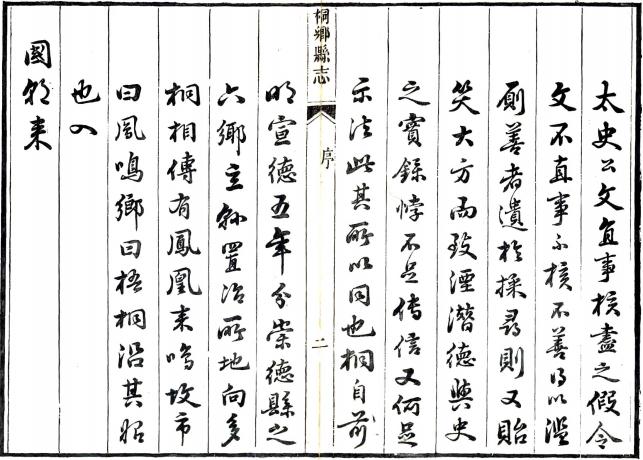 太史公文直事核盡之假令
文不直事不核不善得以濫
厠善者遺於採尋則又貽
笑大方而致湮潛德與史
之實錄悖不足傳信又何足
示法此其所以同也桐自前
桐鄉縣志
序
二
明宣德五年分崇德縣之
六鄉立縣置治所地向多
桐相傳有鳳凰来鳴故市
曰鳳鳴鄉曰梧桐沿其昭
也入
國朝来